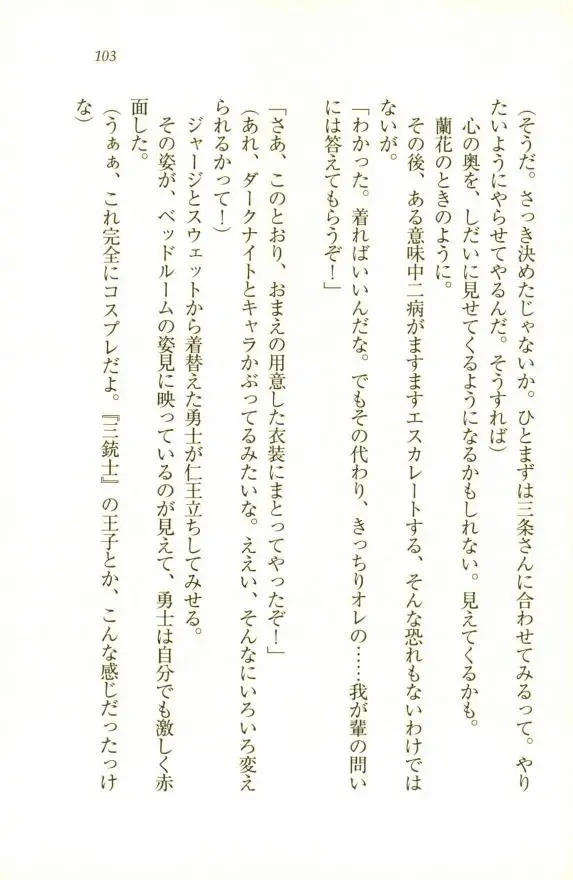 103
（そうだ。さっき決めたじゃないか。ひとまずは三条さんに合わせてみるって。やり
たいようにやらせてやるんだ。そうすれば）
心の奥を、しだいに見せてくるようになるかもしれない。見えてくるかも。
蘭花のときのように。
その後、ある意味中二病がますますエスカレートする、そんな恐れもないわけでは
ないが。
「わかった。着ればいいんだな。でもその代わり、きっちりオレの……我が輩の問い
には答えてもらうぞ！」
「さあ、このとおり、おまえの用意した衣装にまとってやったぞ！」
（あれ、ダークナイトとキャラかぶってるみたいな。ええい、そんなにいろいろ変え
られるかって！）
ジャージとスウェットから着替えた勇士が仁王立ちしてみせる。
その姿が、ベッドルームの姿見に映っているのが見えて、勇士は自分でも激しく赤
面した。
（うぁぁ、これ完全にコスプレだよ。『三銃士』の王子とか、こんな感じだったっけ
な）